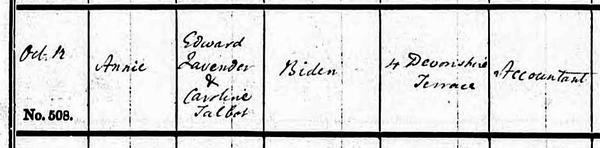 Oct. 12
No. 508.
Annie
Edward
Lavender
&
Caroline
Talbot
Biden
4 Devonshire
Terrace
Accountant